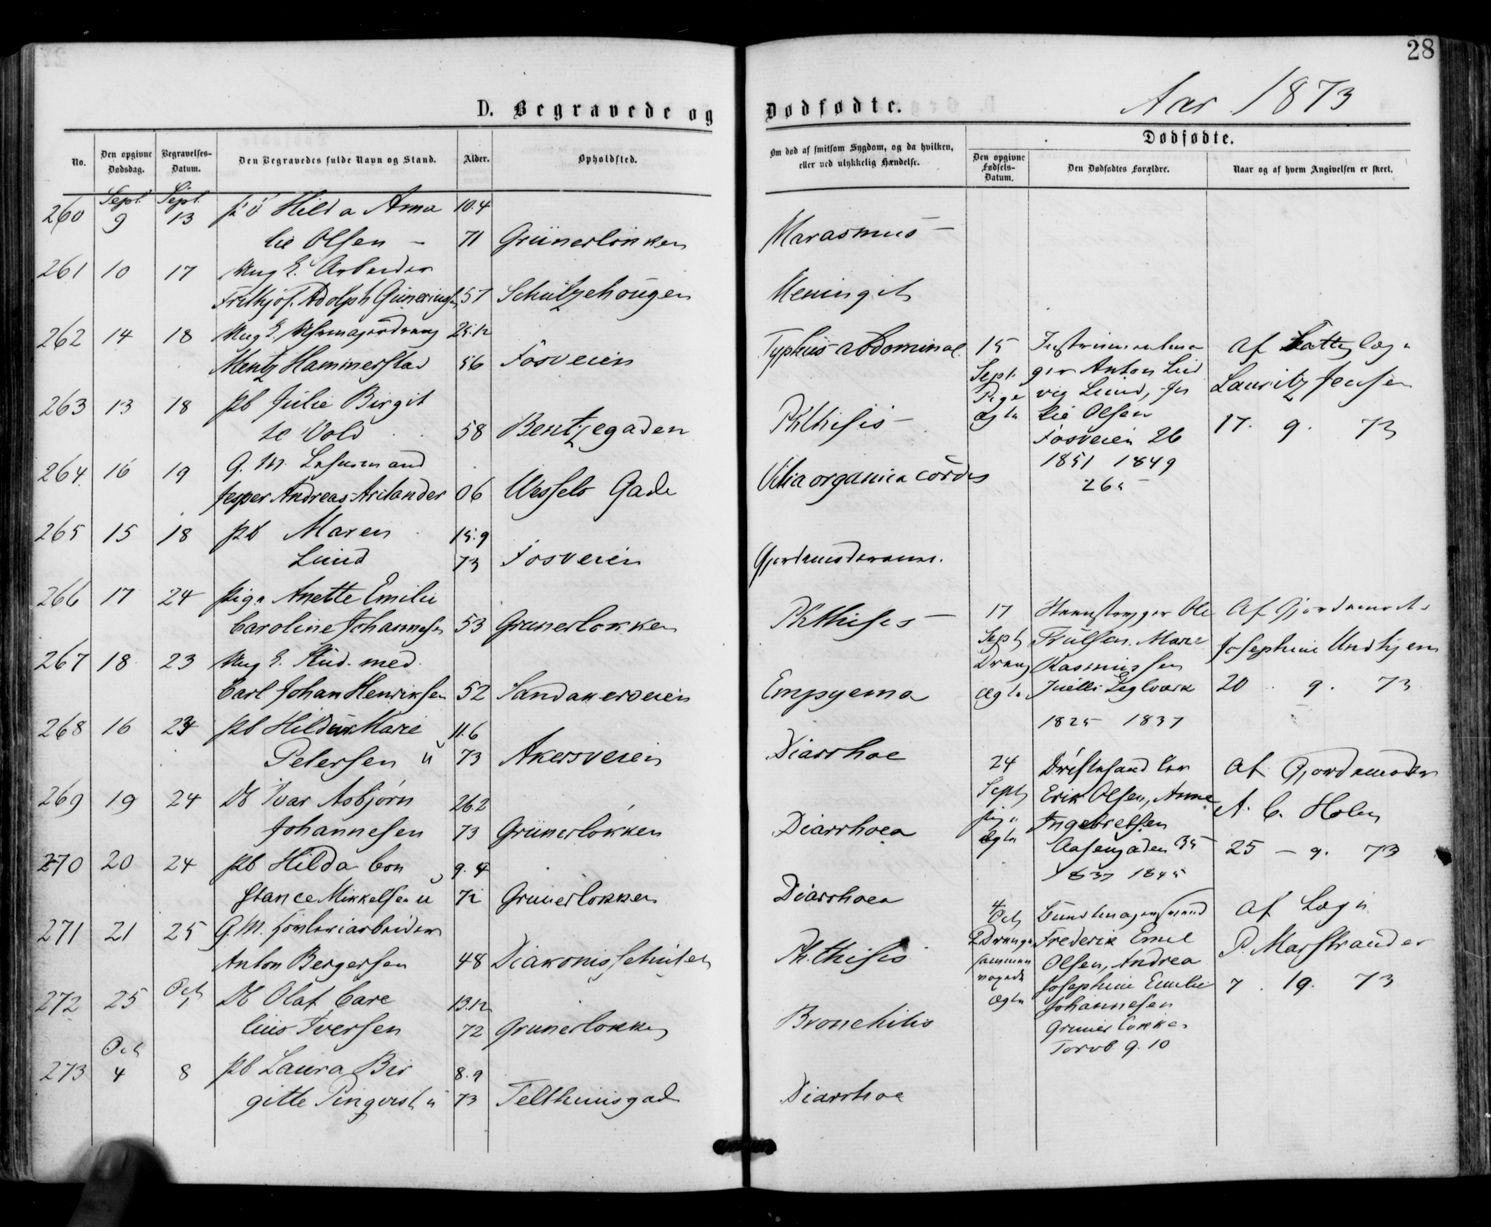 28
Aar 1873
D. Begravede og Dødfødte.
No.
Den opgivne Dødsdag.
Begravelses-Datum.
Den Begravedes fulde Navn og Stand.
Alder.
Opholdsted.
Om død af smitsom Sygdom, og da hvilken, eller ved ulykkelig Hændelse.
Dødfødte.
Den opgivne Fødsels-Datum.
Den Dødfødtes Forældre.
Naar og af hvem Angivelsen er skeet.
260 Sept 9 Sept 13 Hilda Ama 10.4
lie Olsen – 71 Grünerløkken Marasmus –
261 10 17 Ung E. Arbeider
Frithjof Adolph 51 Schützehougen Meningit
262 14 18 Ung E. 25.12
Mentz Hammerstad 56 Fosveien Typhus abdominal
263 13 18 pb Julie Birgit
te Vold 58 Bentzegaden Phthisis –
264 16 19 G. M.
Jesper Andreas Arilander 06 Wessels Gade Vitia organica cordis
265 15 18 pb Maren 15.9
Lund 73 Fosveien
266 17 24 Pige Anette Emilie
Caroline Johannesen 53 Grunerløkken Phthisis –
267 18 23 Ung E. Stud. med.
Carl Johan Henriksen 52 Sandakerveien Empyema
268 16 24 pb Hilda Marie 11.6
Petersen u 73 Akersveien Diarrhoe
269 19 24 Db Ivar Asbjørn 26.2
Johannesen 73 Grünerløkken Diarrhoea
270 20 24 pb Hilda Con 9.4
stance Mikkelsen u 72 Grunerløkken Diarrhoea
271 21 25 G. M.
Anton Bergersen 48 Phthisis
272 25 Oct 1 Db Olaf Care 13.12
lius Iversen 72 Grunerløkken Bronchitis
273 Oct 4 8 pb Laura Bir 8.9
gitte Pinqvist u 73 Telthusgad Diarrhoe
15 Instrumentma af Fattiglæge
Sept ger Anton Lud Lauritz Jensen
Pige vig Lund, Ju 17. 9. 73
ægte lie Olsen
Fosveien 26
1851 1849
26
17 Ole af Gjordemoder
Sept Marie Josephine Undhjem
Dreng Rasmussen 20 . 9. 73
ægte
1825 1837
24 af Gjordemoder
Sept Erik Olsen, Anne A. C. Holm
Pige Ingebretsen 25 – 9. 73
ægte Aasengaden 35
1837 1845
4 Oct af Læge
2 Drenge Frederik Emil P. Marstrander
sammen Olsen, Andrea
voxede Josephine Emilie 7. 19. 73
ægte Johannesen
Gruner Løkken
Torvb 9.10